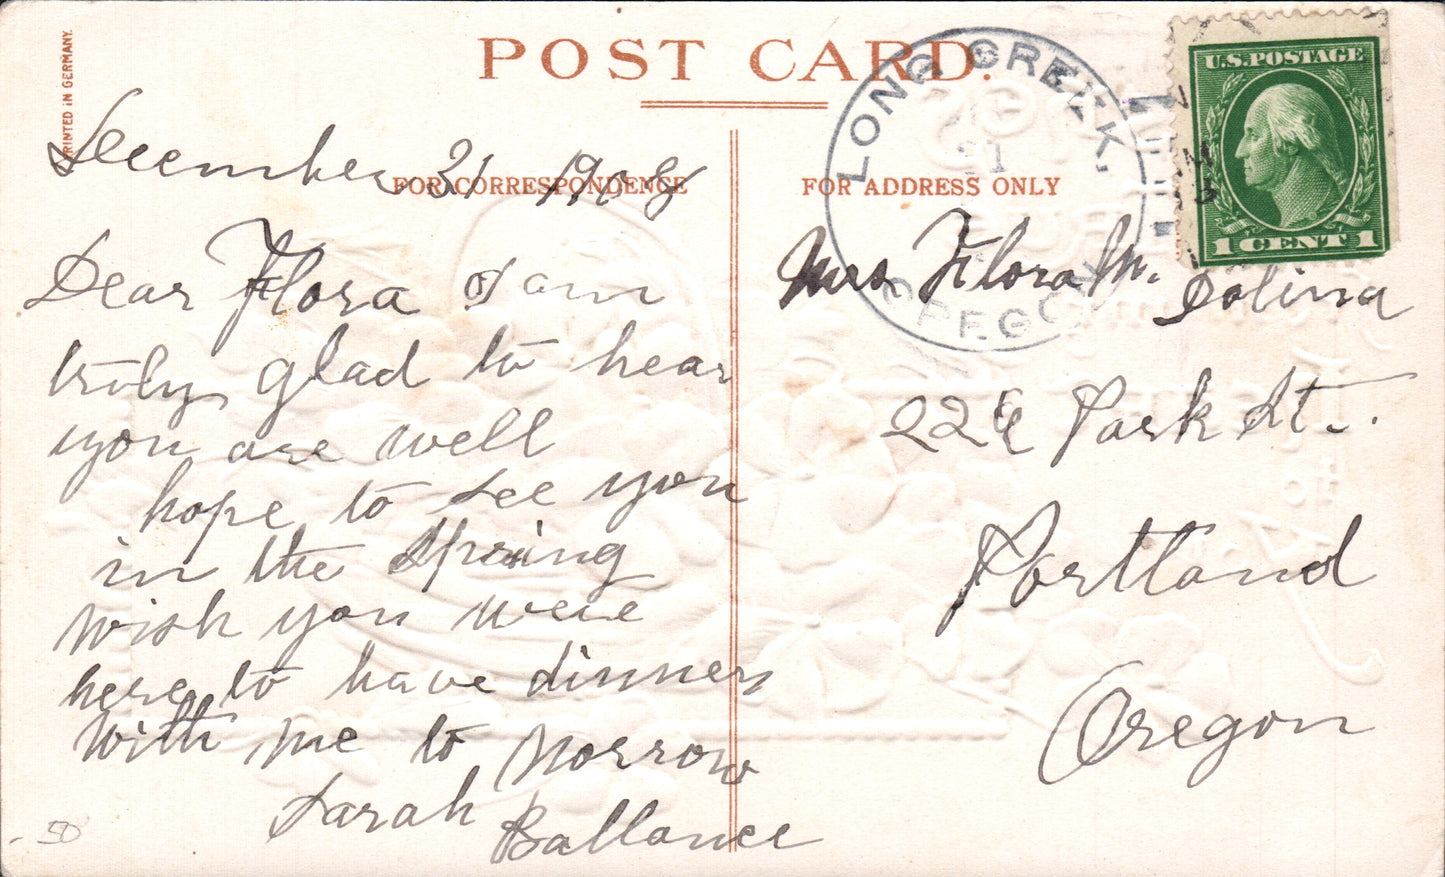 PRINTED IN GERMANY.
POST CARD.
FOR CORRESPONDENCE
FOR ADDRESS ONLY
LONG CREEK,
31
OREGON
U.S. POSTAGE
1 CENT 1
December 31 1908
Dear Flora I am
truly glad to hear
you are well
hope to see you
in the Spring
wish you were
here to have dinner
with me to morrow
Sarah
Ballance
Mrs Flora M.
Park St.
Portland
Oregon
50